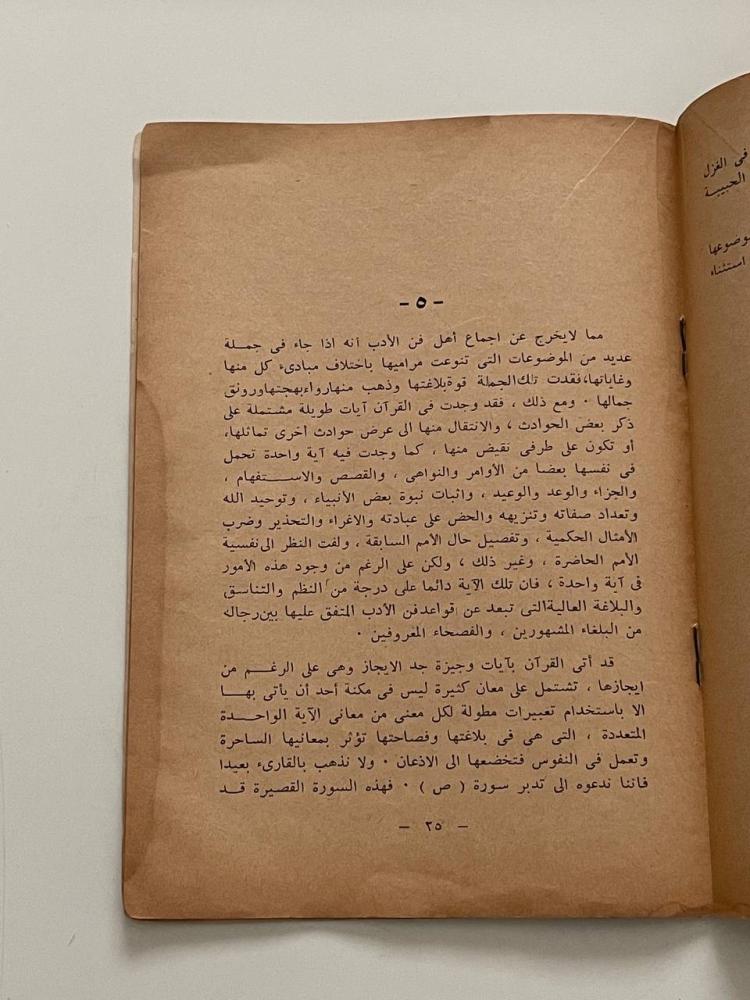 - ٥ -
مما لايخرج عن اجماع أهل فن الأدب أنه اذا جاء فى جملة
عديد من الموضوعات التى تنوعت مراميها باختلاف مبادىء كل منها
وغاياتها،فقدت تلك الجملة قوة بلاغتها وذهب منها رواء بهجتها ورونق
جمالها ٠ ومع ذلك ، فقد وجدت فى القرآن آيات طويلة مشتملة على
ذكر بعض الحوادث ، والانتقال منها الى عرض حوادث أخرى تماثلها،
أو تكون على طرفى نقيض منها ، كما وجدت فيه آية واحدة تحمل
فى نفسها بعضا من الأوامر والنواهى ، والقصص والاستفهام ،
والجزاء والوعد والوعيد ، واثبات نبوة بعض الأنبياء ، وتوحيد الله
وتعداد صفاته وتنزيهه والحض على عبادته والاغراء والتحذير وضرب
الأمثال الحكمية ، وتفصيل حال الأمم السابقة ، ولفت النظر الى نفسية
الأمم الحاضرة ، وغير ذلك ، ولكن على الرغم من وجود هذه الأمور
فى آية واحدة ، فان تلك الآية دائما على درجة من النظم والتناسق
والبلاغة العالية التى تبعد عن قواعد فن الأدب المتفق عليها بين رجاله
من البلغاء المشهورين ، والفصحاء المعروفين ٠
قد أتى القرآن بآيات وجيزة جد الايجاز وهى على الرغم من
ايجازها ، تشتمل على معان كثيرة ليس فى مكنة أحد أن يأتى بها
الا باستخدام تعبيرات مطولة لكل معنى من معانى الآية الواحدة
المتعددة ، التى هى فى بلاغتها وفصاحتها تؤثر بمعانيها الساحرة
وتعمل فى النفوس فتخضعها الى الاذعان ٠ ولا نذهب بالقارىء بعيدا
فاننا ندعوه الى تدبر سورة ( ص ) ٠ فهذه السورة القصيرة قد
- ٢٥ -
فى الغزل
الحبيبة
استثناء